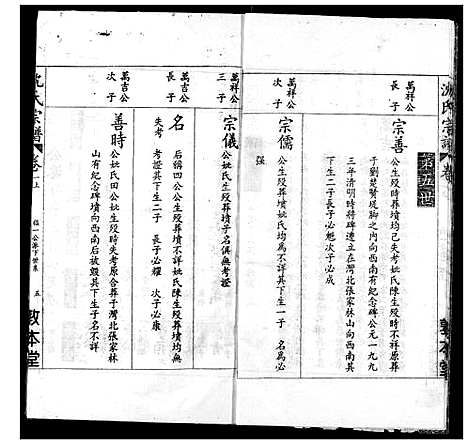 沈氏宗譜
卷一
敦本堂
第五世
萬祥公
長子
宗善
公生歿時葬墳均已失考姚氏生歿時不詳原葬
于劉楚贊堤脚之內向西南有紀念碑公元一九九
三年清明時將碑遷立在灣北張家林山向西南其
下生二子長子必魁次子必成
萬祥公
次子
宗儒
公生歿葬墳姚氏均為不詳其下生一子 名為必
強
萬祥公
三子
宗儀
公姚氏生歿葬墳子名俱無考證
萬吉公
長子
名
失考
后稱四公公生歿葬墳不詳姚氏陳生歿葬墳無
考證其下生二子 長子必耀 次子必康
萬吉公
次子
善時
公姚氏田公姚生歿時失考原合葬于灣北張家林
山有紀念碑墳向西南后被毀其下生子名不詳
沈氏宗譜
卷一上
五
敦本堂